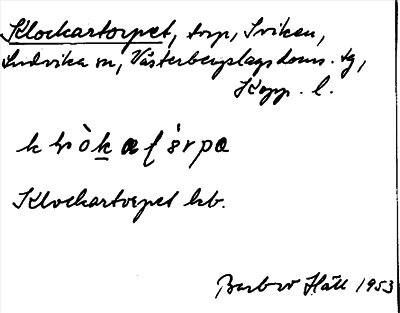 Klockartorpet, torp, Sviken,
Ludvika sn, Västerbergslags doms. tg,
Kopp. l.
Klockartorpet hb.
Barbro Häll 1953